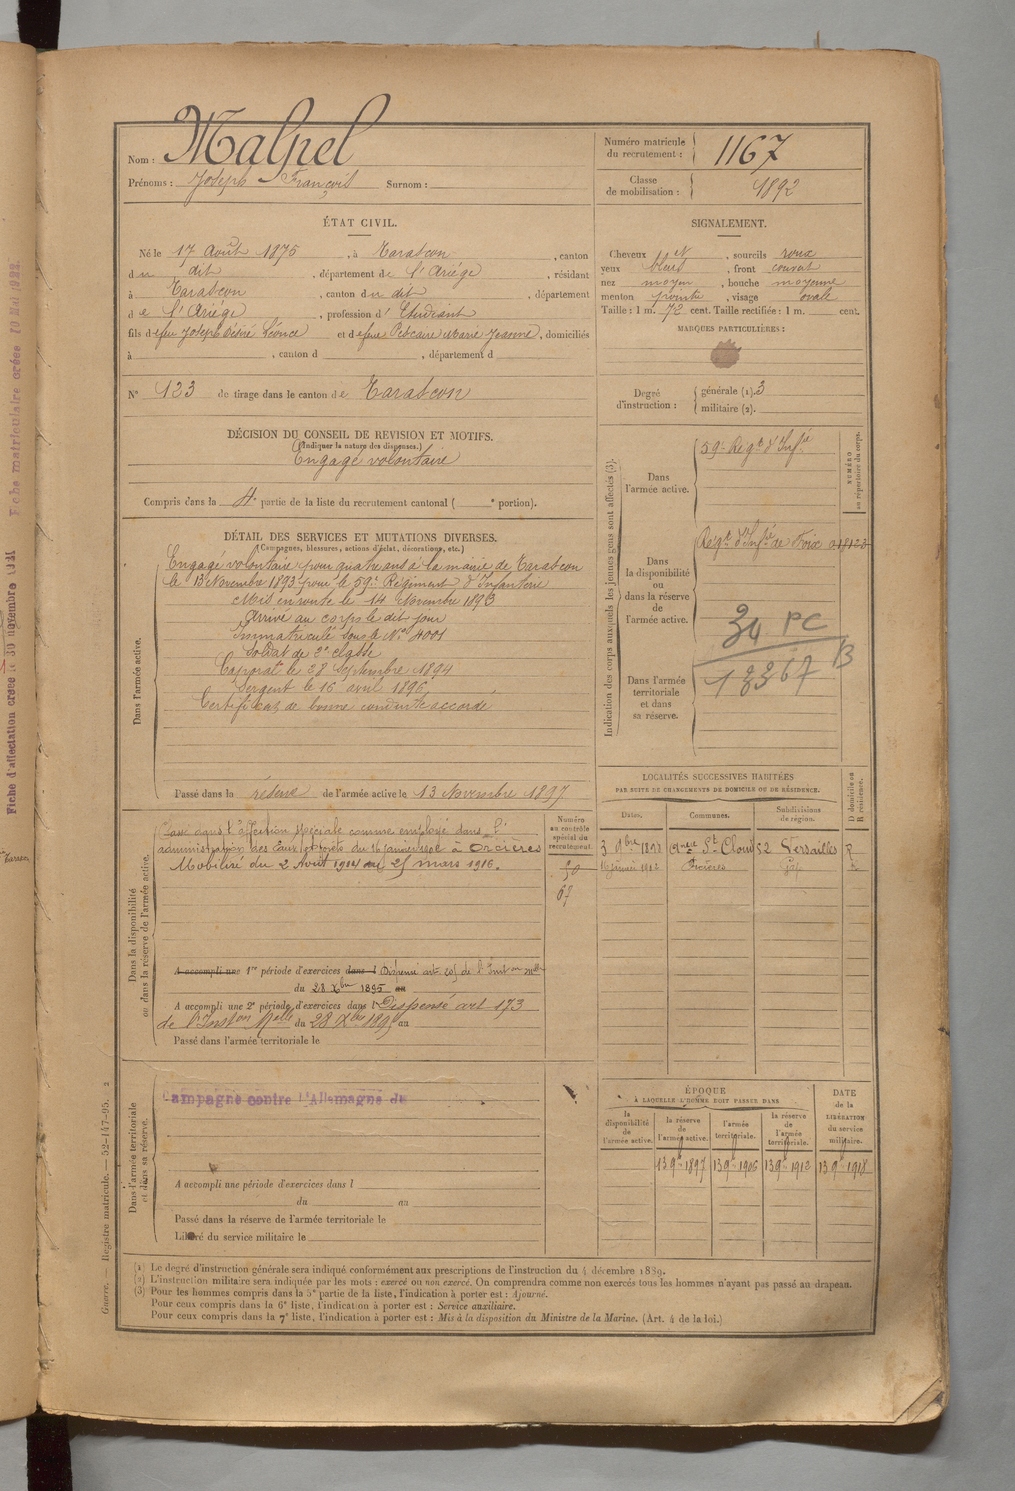 Nom : Malpel
Prénoms : Joseph François Surnom :
Numéro matricule du recrutement : 1167
Classe de mobilisation : 1892
ÉTAT CIVIL.
Né le 17 Août 1875, à Tarascon, canton
du dit, département de l'Ariége, résidant
à Tarascon, canton du dit, département
de l'Ariége, profession d'Etudiant
fils de feu Joseph Désiré Léonce et de feue Marie Jeanne, domiciliés
à , canton d , département d
SIGNALEMENT.
Cheveux , sourcils roux
yeux bleus , front couvert
nez moyen , bouche moyenne
menton pointu , visage ovale
Taille : 1 m. 72 cent. Taille rectifiée : 1 m. cent.
MARQUES PARTICULIÈRES :
N° 123 de tirage dans le canton de Tarascon
Degré d'instruction : générale (1). 3
militaire (2).
DÉCISION DU CONSEIL DE REVISION ET MOTIFS.
(Indiquer la nature des dispenses.)
Engagé volontaire
Compris dans la 4e partie de la liste du recrutement cantonal ( e portion).
DÉTAIL DES SERVICES ET MUTATIONS DIVERSES.
(Campagnes, blessures, actions d'éclat, décorations, etc.)
Dans l'armée active.
Engagé volontaire pour quatre ans à la mairie de Tarascon
le 13 Novembre 1893 pour le 59e Régiment d'Infanterie
Mis en route le 14 Novembre 1893
arrivé au corps le dit jour
Immatriculé sous le No 4001
soldat de 2e classe
Caporal le 28 Septembre 1894
Sergent le 16 avril 1896
Certificat de bonne conduite accordé
Passé dans la réserve de l'armée active le 13 Novembre 1897
Indication des corps auxquels les jeunes gens sont affectés (3).
NUMÉRO au répertoire du corps.
Dans l'armée active.
59e Régt d'Infie
Dans la disponibilité ou dans la réserve de l'armée active.
Régt d'Infie de Foix
34 PC
Dans l'armée territoriale et dans sa réserve.
LOCALITÉS SUCCESSIVES HABITÉES
PAR SUITE DE CHANGEMENTS DE DOMICILE OU DE RÉSIDENCE.
Dates. Communes. Subdivisions de région. D domicile ou R résidence.
3 9bre 1898 St Cloud Versailles R
16 janvier 1902 Orcières Gap
Dans la disponibilité ou dans la réserve de l'armée active.
Numéro au contrôle spécial du recrutement.
Passé dans l'affection spéciale comme employé dans l'
administration des Eaux et Forêts du 16 janvier à Orcières
Mobilisé du 2 Août 1914 au 25 mars 1916.
A accompli une 1re période d'exercices dans l Dispensé art. de l'Inston
du 28 Xbre 1895 au
A accompli une 2e période d'exercices dans l Dispensé art 173
de l'Inston Melle du 28 Xbre 1895 au
Passé dans l'armée territoriale le
Dans l'armée territoriale et dans sa réserve.
Campagne contre l'Allemagne du
A accompli une période d'exercices dans l
du au
Passé dans la réserve de l'armée territoriale le
Libéré du service militaire le
ÉPOQUE
À LAQUELLE L'HOMME DOIT PASSER DANS
la disponibilité de l'armée active. la réserve de l'armée active. l'armée territoriale. la réserve de l'armée territoriale. DATE de la LIBÉRATION du service militaire.
13 9bre 1897 13 9bre 1906 13 9bre 1912 13 9bre 1918
(1) Le degré d'instruction générale sera indiqué conformément aux prescriptions de l'instruction du 4 décembre 1889.
(2) L'instruction militaire sera indiquée par les mots : exercé ou non exercé. On comprendra comme non exercés tous les hommes n'ayant pas passé au drapeau.
(3) Pour les hommes compris dans la 5e partie de la liste, l'indication à porter est : Ajourné.
Pour ceux compris dans la 6e liste, l'indication à porter est : Service auxiliaire.
Pour ceux compris dans la 7e liste, l'indication à porter est : Mis à la disposition du Ministre de la Marine. (Art. 4 de la loi.)
Guerre. — Registre matricule. — 52-147-95. 2
Fiche matriculaire créée 10 Mai 1922.
Fiche d'affectation créée le 30 novembre